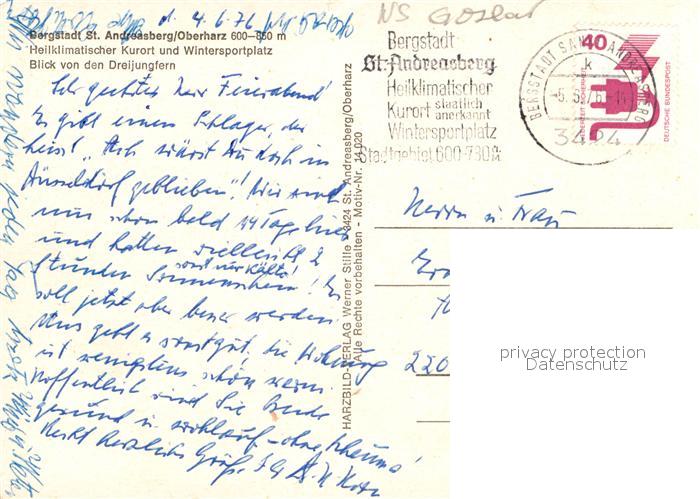 NS Goslar
d. 4.6.76
Bergstadt St. Andreasberg/Oberharz 600-850 m
Heilklimatischer Kurort und Wintersportplatz
Blick von den Dreijungfern
Sehr geehrter Herr Feierabend
Es gibt einen Schlager, der
heist "Ach wärst Du doch in
Düsseldorf geblieben"! Wir sind
nun schon bald 14 Tage hier
und hatten vielleicht 2
Stunden Sonnenschein! Es
sonst nur Kälte!
soll jetzt aber besser werden.
Uns geht es sonst gut, die Wohnung
ist wenigstens schön warm.
Hoffentlich sind Sie beide
gesund u. wohlauf - ohne Rheuma!
Recht herzliche Grüße
HARZBILD-VERLAG Werner Stille - 3424 St. Andreasberg/Oberharz
Alle Rechte vorbehalten - Motiv-Nr. 14 020
Bergstadt
St. Andreasberg
Heilklimatischer
Kurort staatlich anerkannt
Wintersportplatz
Stadtgebiet 600-730 m
BERGSTADT SANKT ANDREASBERG
k
3424
40
DEUTSCHE BUNDESPOST
Herrn u. Frau
220
privacy protection
Datenschutz